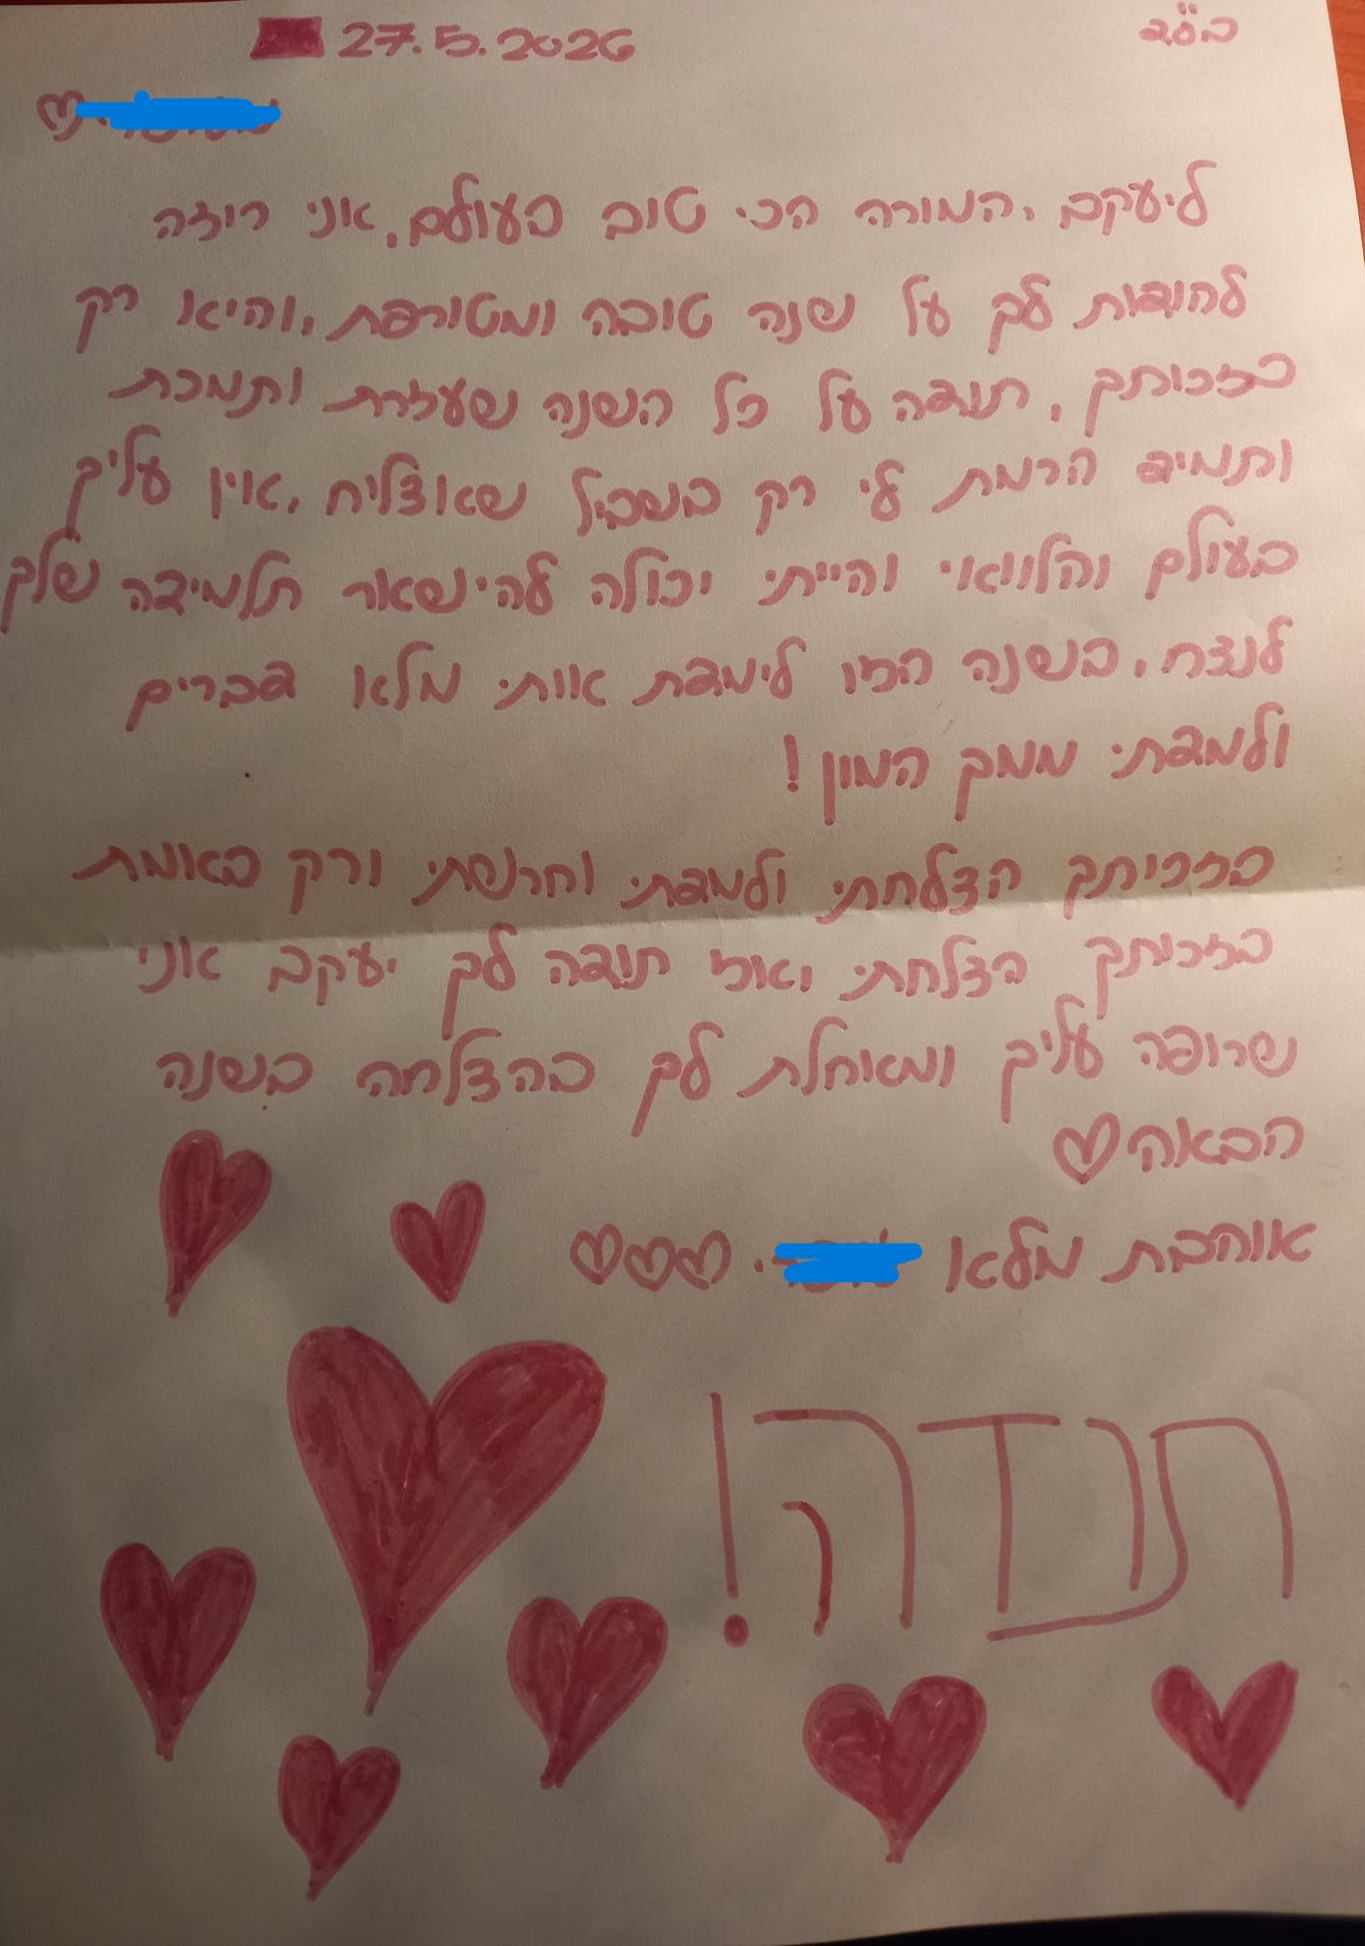 בס"ד
27.5.2026
ליעקב, המורה הכי טוב בעולם, אני רוצה
להודות לך על שנה טובה ומטורפת, והיא רק
בזכותך, תודה על כל השנה שעזרת ותמכת
ותמיד הרמת לי רק בשביל שאצליח, אין עליך
בעולם והלוואי והייתי יכולה להישאר תלמידה שלך
לנצח, בשנה הזו לימדת אותי מלא דברים
ולמדתי ממך המון!
בזכותך הצלחתי ולמדתי וחרשתי ורק באמת
בזכותך הצלחתי, אז תודה לך יעקב אני
שרופה עליך ומאחלת לך בהצלחה בשנה
הבאה♡
אוהבת מלא ♡♡♡
תודה!